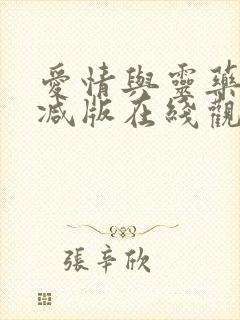 愛情與靈藥
減版在綫觀
張辛欣